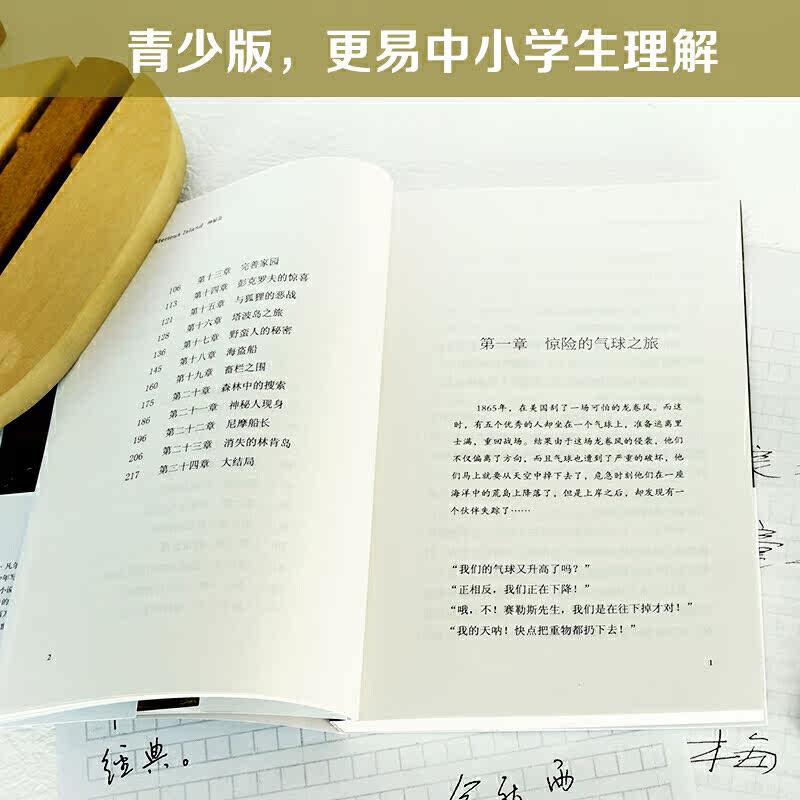 青少版，更易中小学生理解
sterious Island 神秘岛
106 第十三章 完善家园
113 第十四章 彭克罗夫的惊喜
121 第十五章 与狐狸的恶战
128 第十六章 塔波岛之旅
136 第十七章 野蛮人的秘密
145 第十八章 海盗船
160 第十九章 畜栏之围
175 第二十章 森林中的搜索
186 第二十一章 神秘人现身
196 第二十二章 尼摩船长
206 第二十三章 消失的林肯岛
217 第二十四章 大结局
2
第一章 惊险的气球之旅
1865年，在美国刮了一场可怕的龙卷风。而这
时，有五个优秀的人却坐在一个气球上，准备逃离里
士满，重回战场。结果由于这场龙卷风的侵袭，他们
不仅偏离了方向，而且气球也遭到了严重的破坏，他
们马上就要从天空中掉下去了，危急时刻他们在一座
海洋中的荒岛上降落了，但是上岸之后，却发现有一
个伙伴失踪了……
“我们的气球又升高了吗？”
“正相反，我们正在下降！”
“哦，不！赛勒斯先生，我们是在往下掉才对！”
“我的天呐！快点把重物都扔下去！”
1
经典。
梅